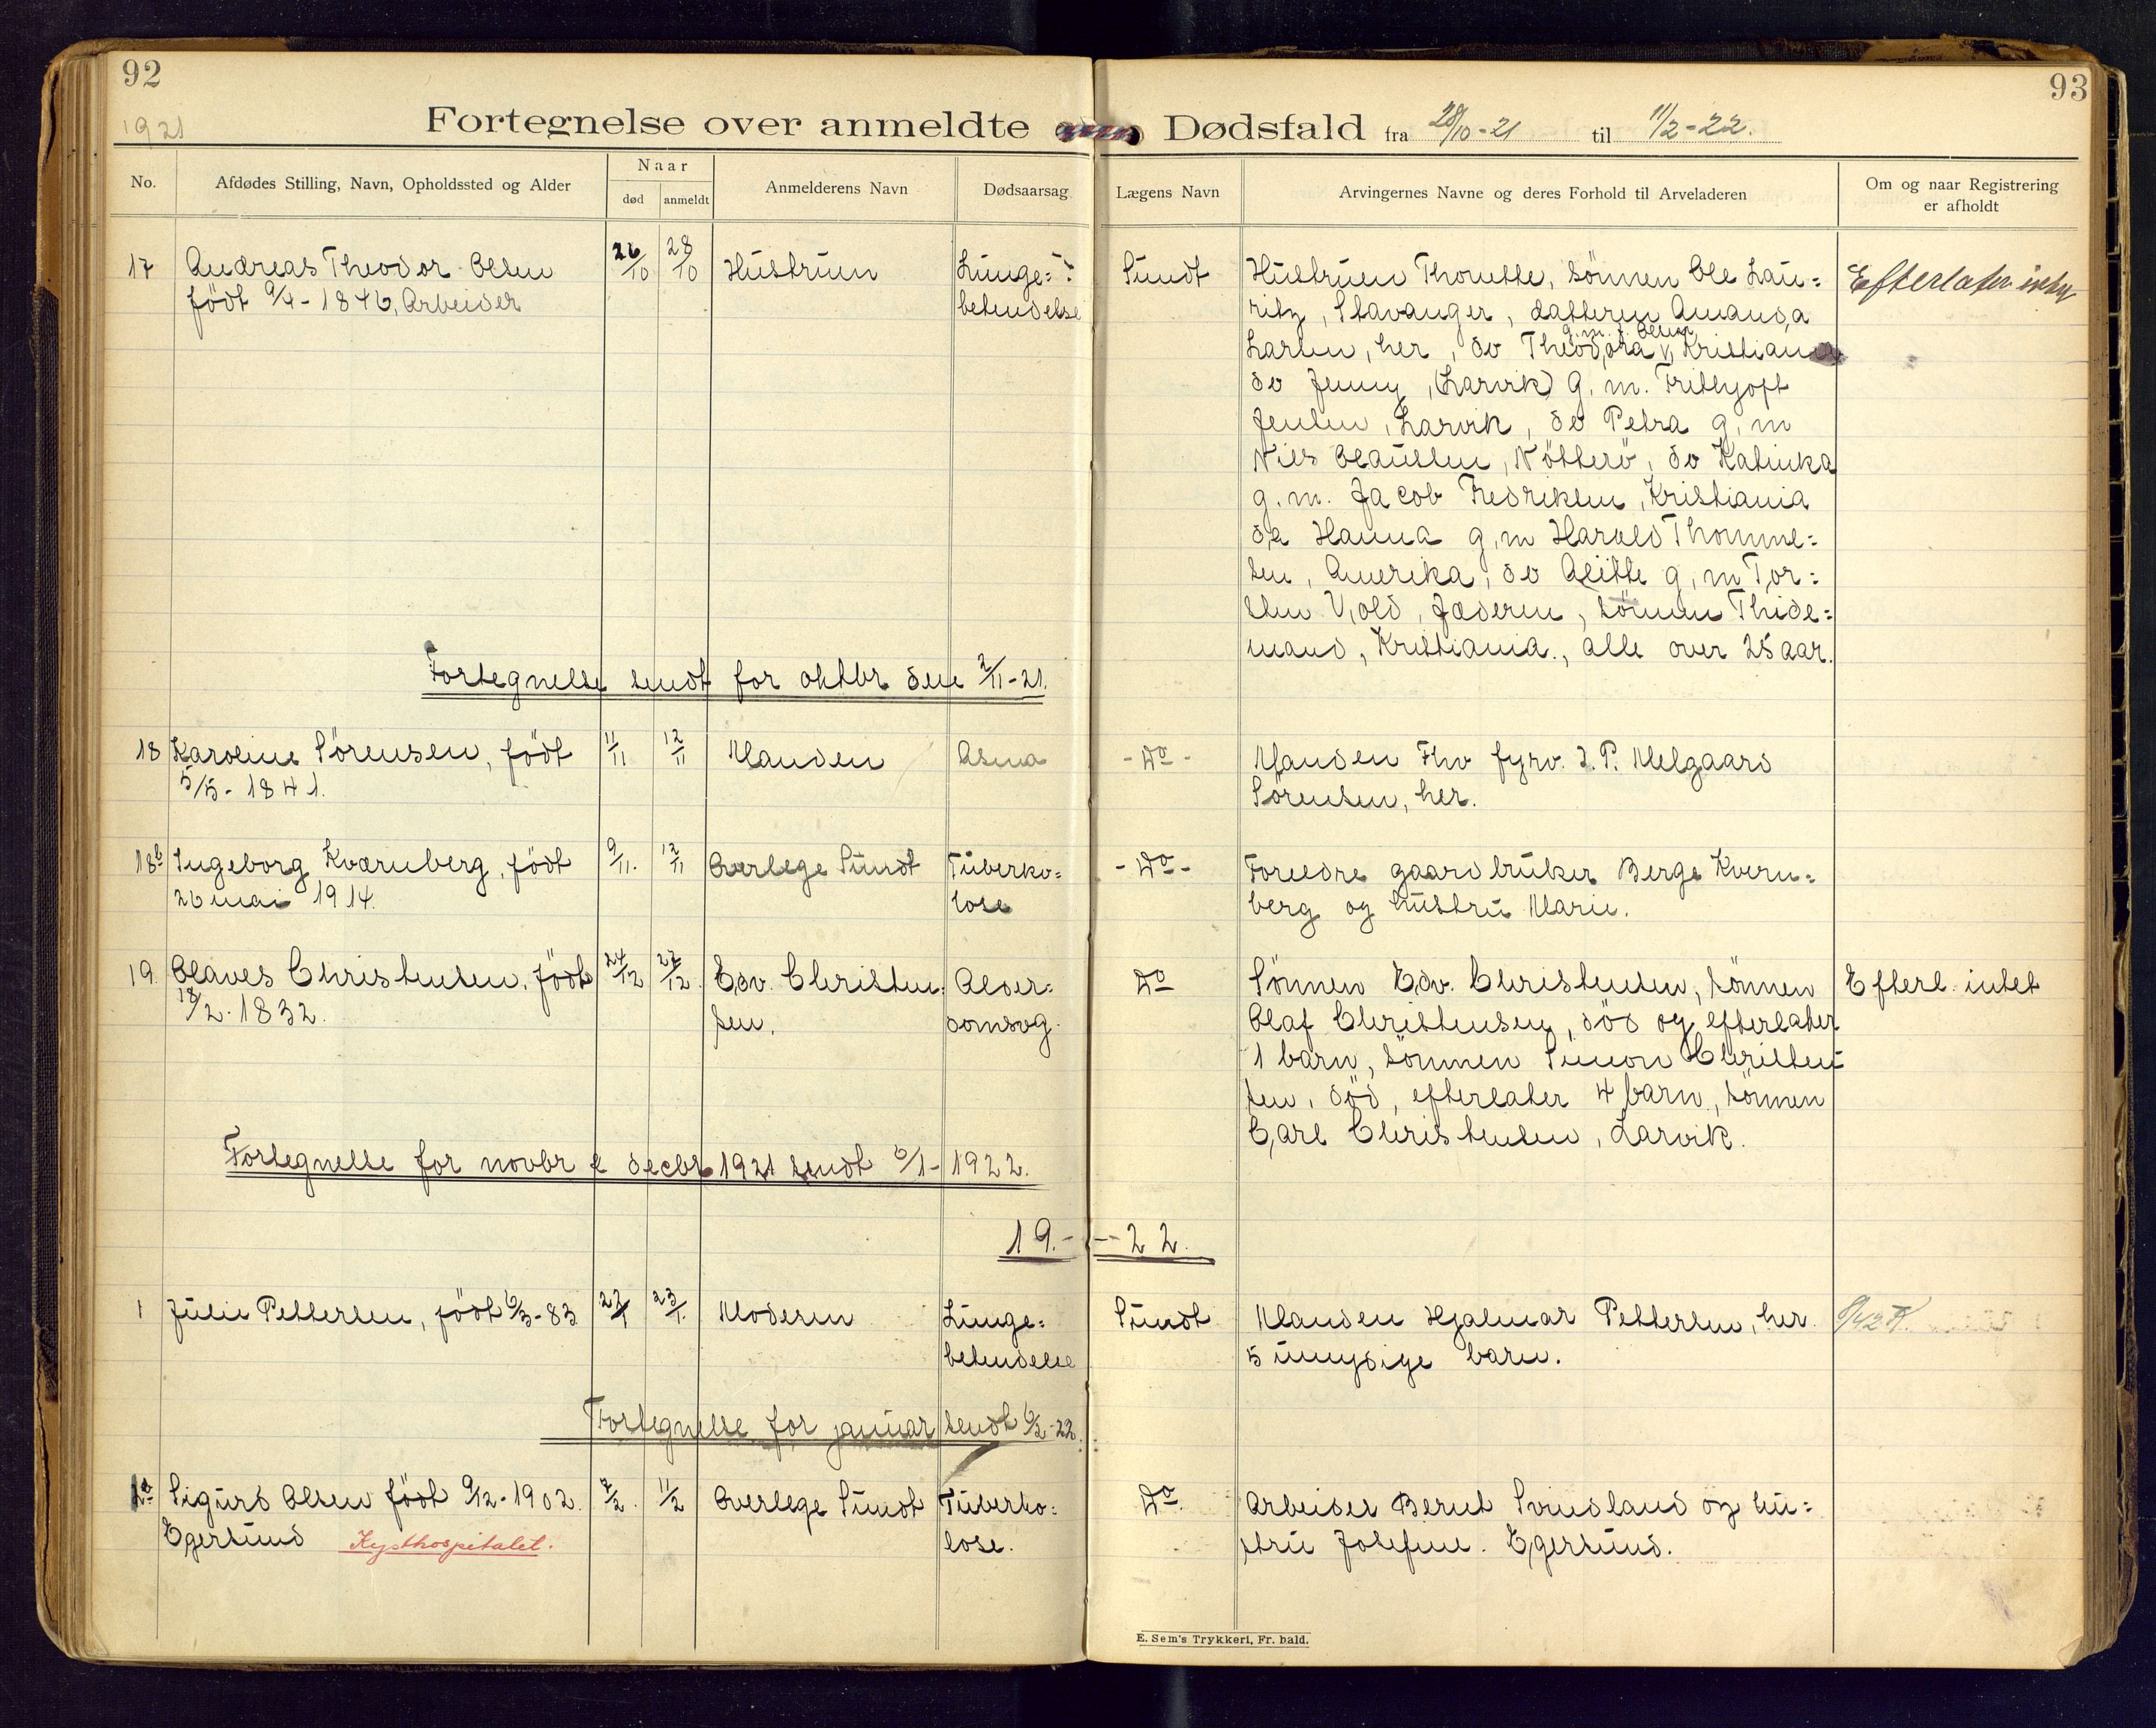 92
93
1921
Fortegnelse over anmeldte Dødsfald fra 28/10-21 til 11/2-22.
No. Afdødes Stilling, Navn, Opholdssted og Alder Naar død anmeldt Anmelderens Navn Dødsaarsag Lægens Navn Arvingernes Navne og deres Forhold til Arveladeren Om og naar Registrering er afholdt
17 Andreas Theodor Olsen 26/10 28/10 Hustruen Lunge= Sundt Hustruen Thomette, sønnen Ole Lau= Efterlater intet
født 9/4-1846, Arbeider betendelse ritz, Stavanger, datteren Amanda
g.m. J. Olsen
Larsen, her, do Theodora, Kristiania
do Jenny, (Larvik) g.m. Frithjoft
Jensen, Larvik, do Petra g.m
Nils Olaussen, Nøtterø, do Katinka
g.m. Jacob Fredriksen, Kristiania
do Hanna g.m Harald Thomme=
sen, Amerika, do Alitte g.m Tor=
sten Vold, Jæderen, sønnen Thide=
mand, Kristiania., alle over 25 aar.
Fortegnelse sendt for oktbr den 2/11-21.
18 Karoline Sörensen, født 11/11 12/11 Manden Asma -Do- Manden Fhv fyrv. I. P. Melgaard
5/5-1841. Sørensen, her.
18b Ingeborg Kvarnberg, født 9/11. 12/11 Overlege Sundt Tuberko= -Do- Foreldre gaardbruker Berge Kvern=
26 mai 1914. lose berg og hustru Marie.
19. Olaves Christensen, født 24/12 27/12. Edv. Christen= Alder= Do Sönnen Edv. Christensen, sönnen Efterl. intet
18/2-1832. sen. domsvg. Olaf Christensen, död og efterlater
1 barn, sönnen Simon Christen=
sen, död, efterlater 4 barn, sönnen
Carl Christensen, Larvik.
Fortegnelse for novbr & decbr 1921 sendt 6/1-1922.
19.--22.
1 Julie Pettersen, født 6/3-83 22/1 23/1. Moderen Lunge= Sundt Manden Hjalmar Pettersen, her.
betendelse 5 umyndige barn.
Fortegnelse for januar sendt 6/2-22.
1a Sigurd Olsen født 9/12-1902. 7/2. 11/2 Overlege Sundt Tuberko= Do. Arbeider Bernt Svindland og hu=
Egersund Kysthospitalet. lose. stru Josefine. Egersund.
E. Sem's Trykkeri, Fr. hald.